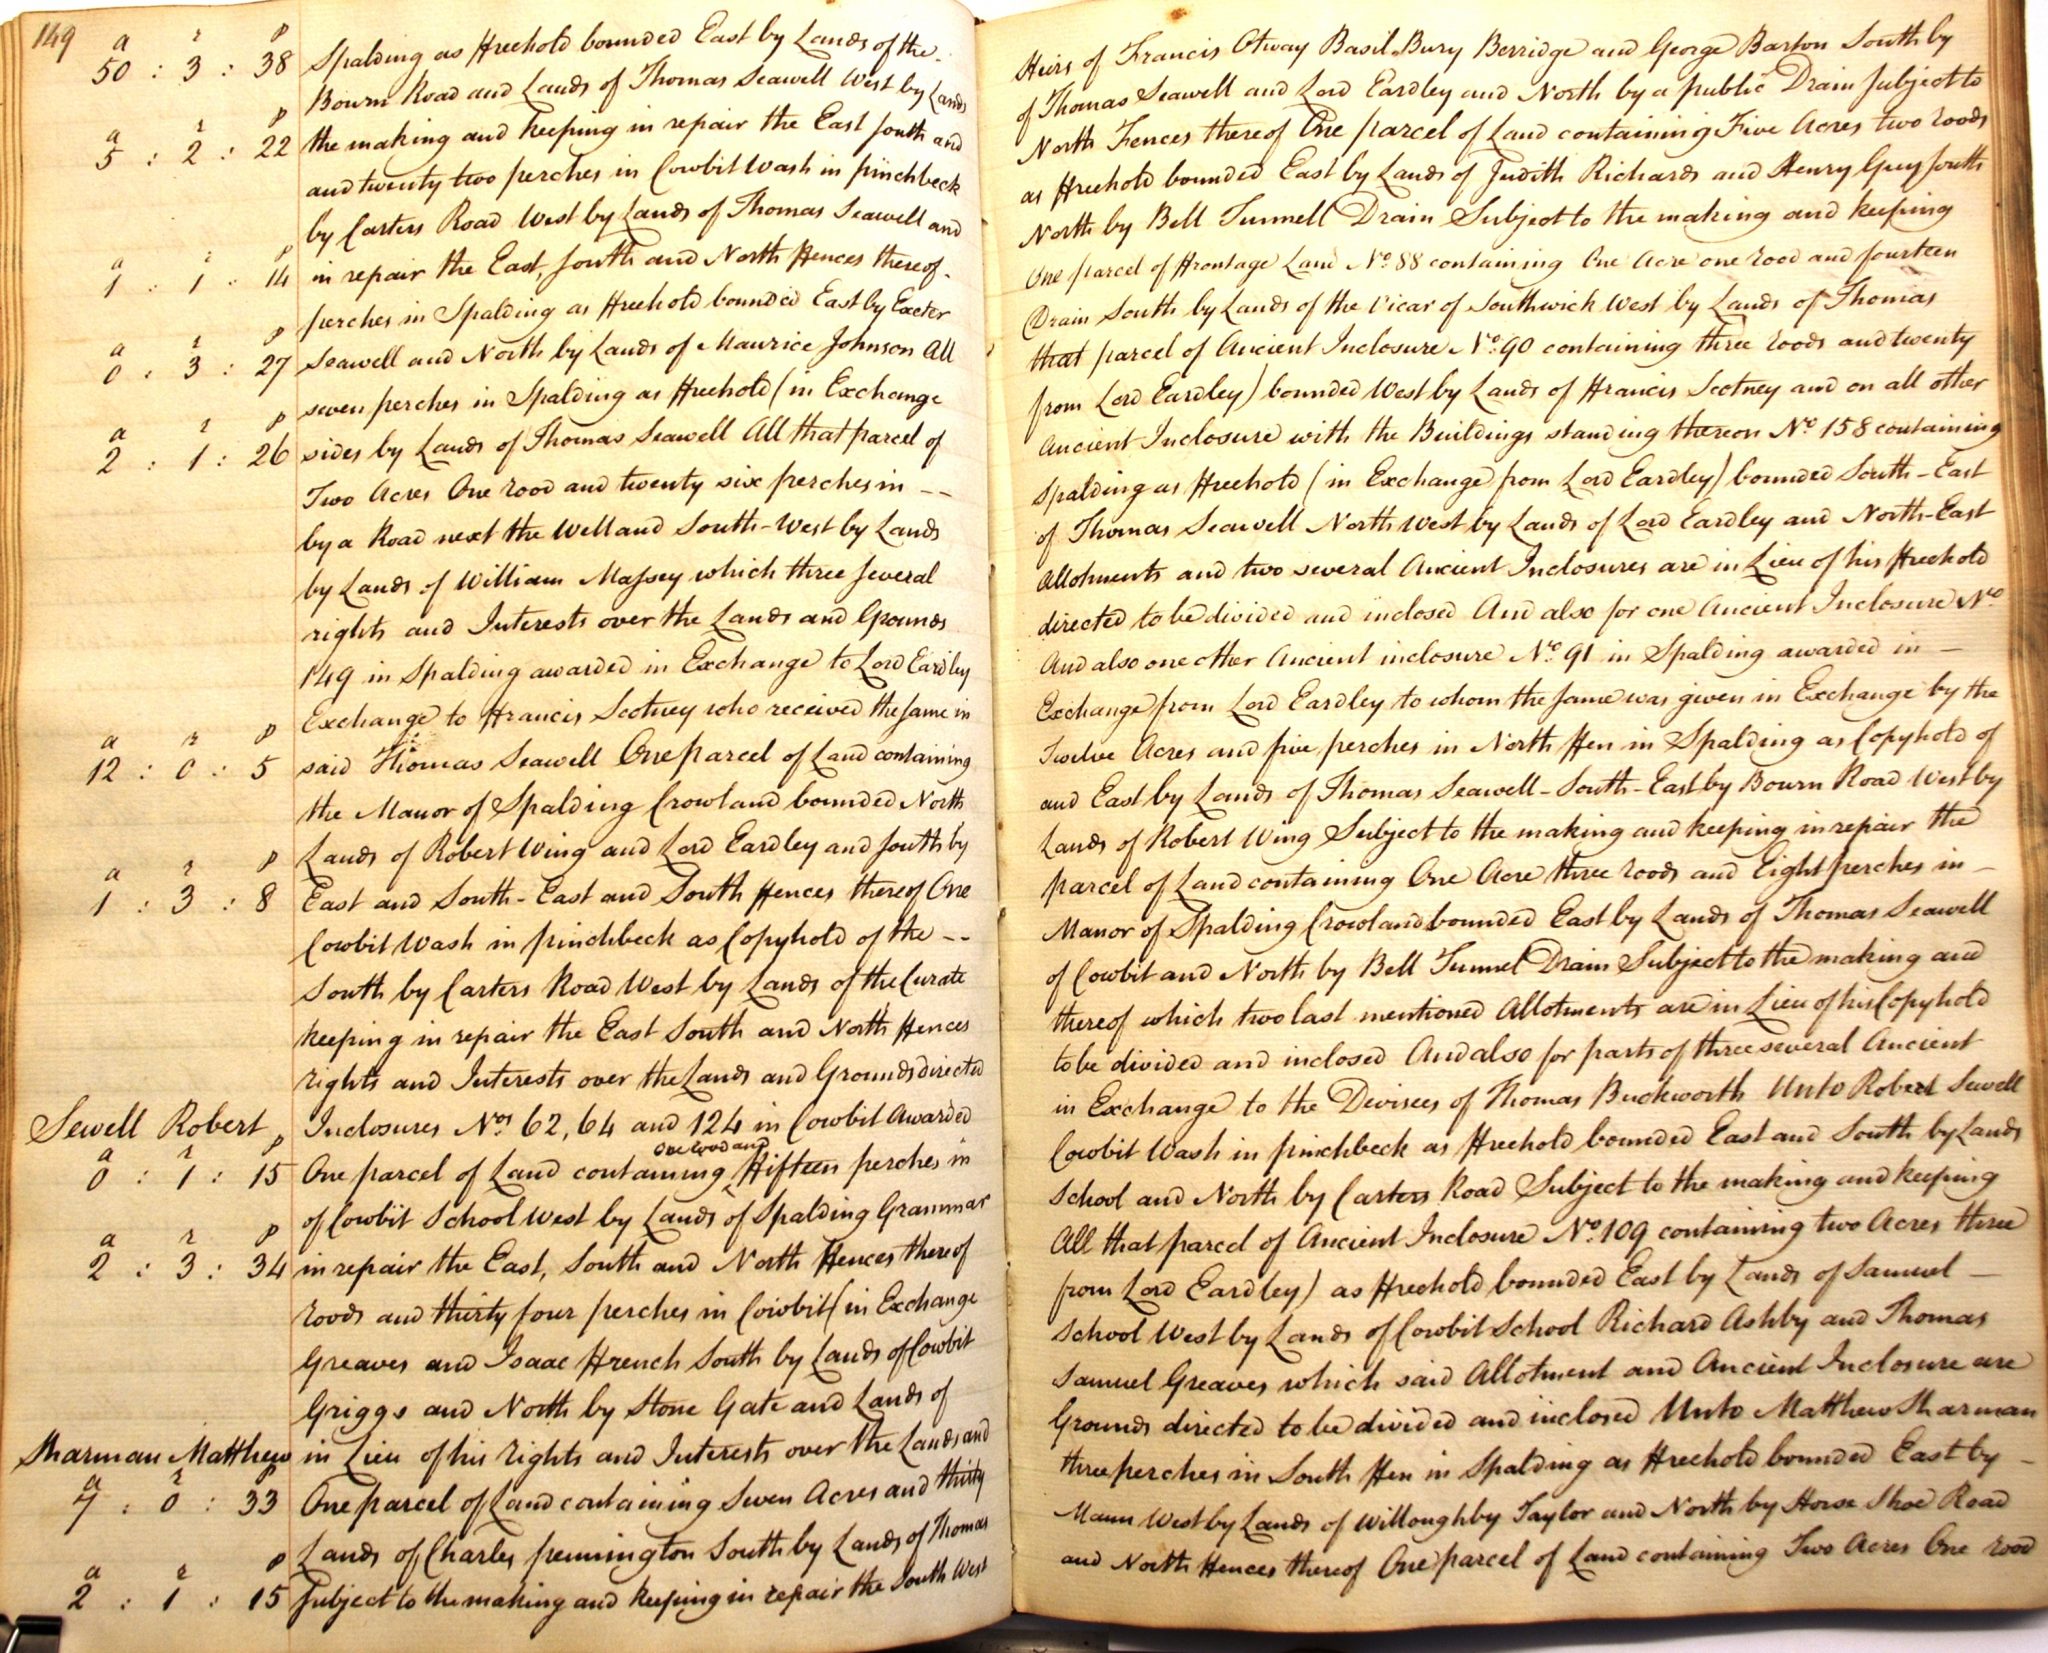 149
a r p
50 : 3 : 38 Spalding as Freehold bounded East by Lands of the Heirs of Francis Otway Basil Bury Berridge and George Barton South by
Bourn Road and Lands of Thomas Seawell West by Lands of Thomas Seawell and Lord Eardley and North by a public Drain Subject to
a r p
5 : 2 : 22 the making and keeping in repair the East South and North Fences thereof One parcel of Land containing Five Acres two roods
and twenty two perches in Cowbit Wash in pinchbeck as Freehold bounded East by Lands of Judith Richards and Henry Guy South
by Carters Road West by Lands of Thomas Seawell and North by Bell Tunnell Drain Subject to the making and keeping
a r p
1 : 1 : 14 in repair the East, South and North Fences thereof - One parcel of Frontage Land No. 88 containing One Acre one rood and fourteen
perches in Spalding as Freehold bounded East by Exeter Drain South by Lands of the Vicar of Southwick West by Lands of Thomas
a r p
0 : 3 : 27 Seawell and North by Lands of Maurice Johnson All that parcel of Ancient Inclosure No. 90 containing three roods and twenty
seven perches in Spalding as Freehold (in Exchange from Lord Eardley) bounded West by Lands of Francis Scotney and on all other
a r p
2 : 1 : 26 sides by Lands of Thomas Seawell All that parcel of Ancient Inclosure with the Buildings standing thereon No. 158 containing
Two Acres One rood and twenty six perches in -- Spalding as Freehold (in Exchange from Lord Eardley) bounded South-East
by a Road next the Welland South-West by Lands of Thomas Seawell North West by Lands of Lord Eardley and North-East
by Lands of William Massey which three several Allotments and two several Ancient Inclosures are in Lieu of his Freehold
rights and Interests over the Lands and Grounds directed to be divided and inclosed And also for one Ancient Inclosure No.
149 in Spalding awarded in Exchange to Lord Eardley And also one other Ancient inclosure No. 91 in Spalding awarded in -
Exchange to Francis Scotney who received the same in Exchange from Lord Eardley to whom the same was given in Exchange by the
a r p
12 : 0 : 5 said Thomas Seawell One parcel of Land containing Twelve Acres and five perches in North Fen in Spalding as Copyhold of
the Manor of Spalding Crowland bounded North and East by Lands of Thomas Seawell - South-East by Bourn Road West by
Lands of Robert Wing and Lord Eardley and South by Lands of Robert Wing Subject to the making and keeping in repair the
a r p
1 : 3 : 8 East and South-East and South Fences thereof One parcel of Land containing One Acre three roods and Eight perches in -
Cowbit Wash in pinchbeck as Copyhold of the -- Manor of Spalding Crowland bounded East by Lands of Thomas Seawell
South by Carters Road West by Lands of the Curate of Cowbit and North by Bell Tunnel Drain Subject to the making and
keeping in repair the East South and North Fences thereof which two last mentioned Allotments are in Lieu of his Copyhold
rights and Interests over the Lands and Grounds directed to be divided and inclosed And also for parts of three several Ancient
Sewell Robert Inclosures Nos. 62, 64 and 124 in Cowbit Awarded in Exchange to the Devisees of Thomas Buckworth Unto Robert Sewell
a r p
0 : 1 : 15 One parcel of Land containing One rood and Fifteen perches in Cowbit Wash in pinchbeck as Freehold bounded East and South by Lands
of Cowbit School West by Lands of Spalding Grammar School and North by Carters Road Subject to the making and keeping
a r p
2 : 3 : 34 in repair the East, South and North Fences thereof All that parcel of Ancient Inclosure No. 109 containing two Acres three
roods and thirty four perches in Cowbit (in Exchange from Lord Eardley) as Freehold bounded East by Lands of Samuel -
Greaves and Isaac French South by Lands of Cowbit School West by Lands of Cowbit School Richard Ashby and Thomas
Griggs and North by Stone Gate and Lands of Samuel Greaves which said Allotment and Ancient Inclosure are
Sharman Matthew in Lieu of his rights and Interests over the Lands and Grounds directed to be divided and inclosed Unto Matthew Sharman
a r p
7 : 0 : 33 One parcel of Land containing Seven Acres and thirty three perches in South Fen in Spalding as Freehold bounded East by -
Lands of Charles pennington South by Lands of Thomas Mann West by Lands of Willoughby Taylor and North by Horse Shoe Road
a r p
2 : 1 : 15 Subject to the making and keeping in repair the South West and North Fences thereof One parcel of Land containing Two Acres One rood